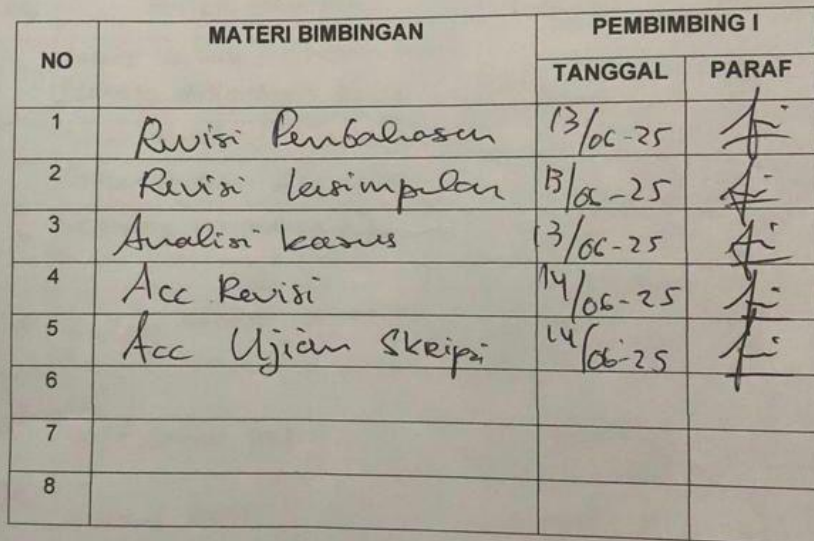 NO MATERI BIMBINGAN PEMBIMBING I
TANGGAL PARAF
1 Revisi Pembahasan 13/06-25
2 Revisi kesimpulan 13/06-25
3 Analisi kasus 13/06-25
4 Acc Revisi 14/06-25
5 Acc Ujian Skripsi 14/06-25
6
7
8